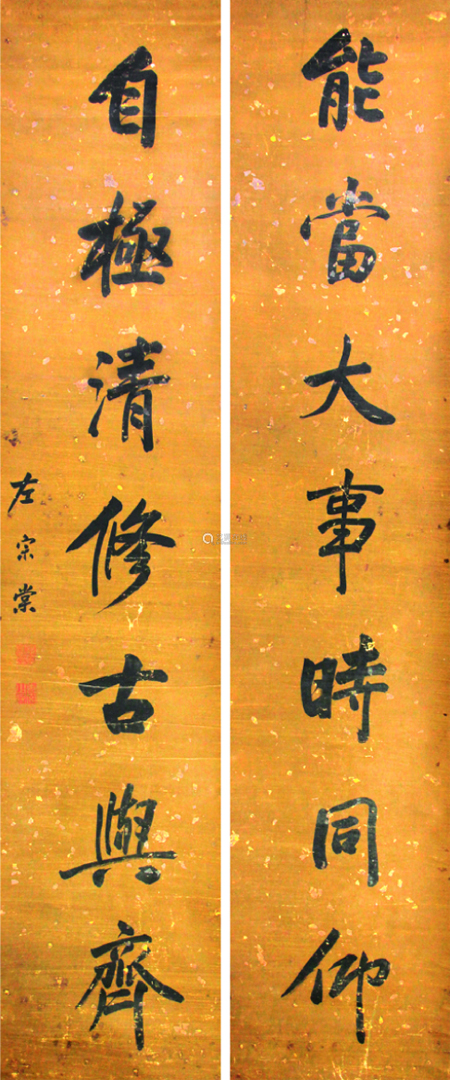 能當大事時同仰
自極清修古與齊
左宗棠